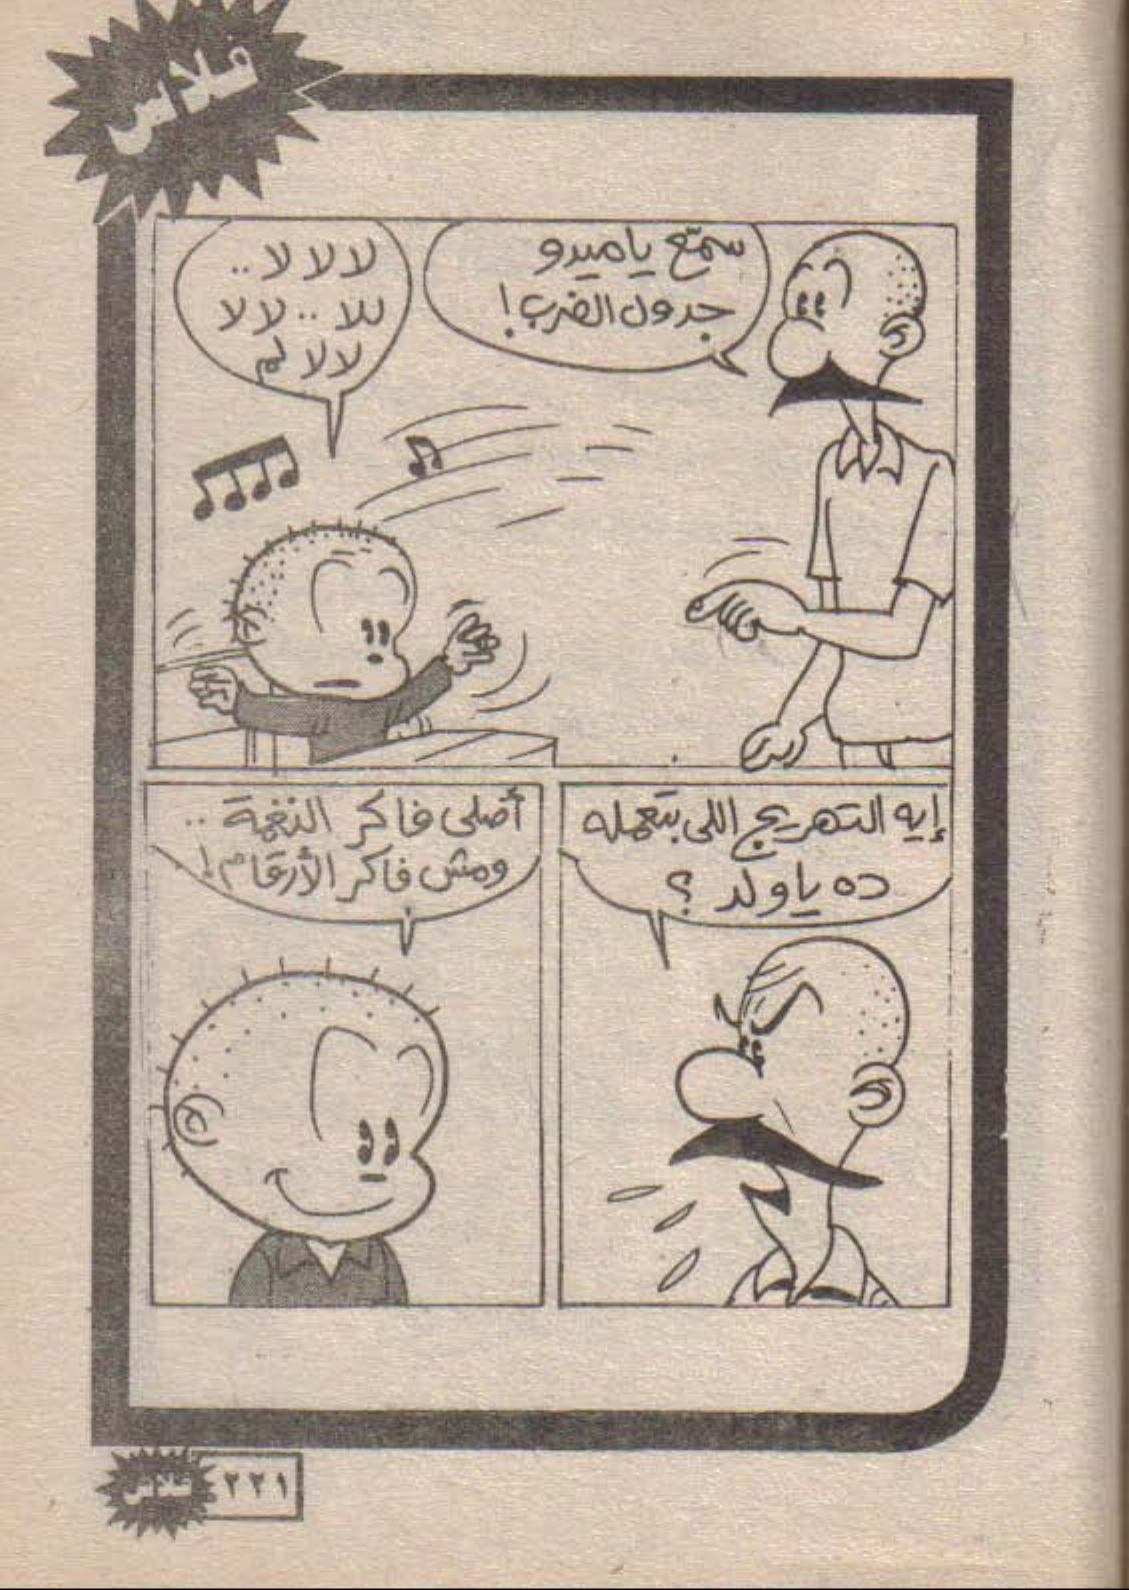 فلاش
سمّع ياميدو
جدول الضرب!
لا لا لا ..
للا .. لا لا
لا لا لم
إيه التهريج اللى بتعمله
ده ياولد ؟
أصلى فاكر النغمة ..
ومش فاكر الأرقام!
فلاش
٢٢١